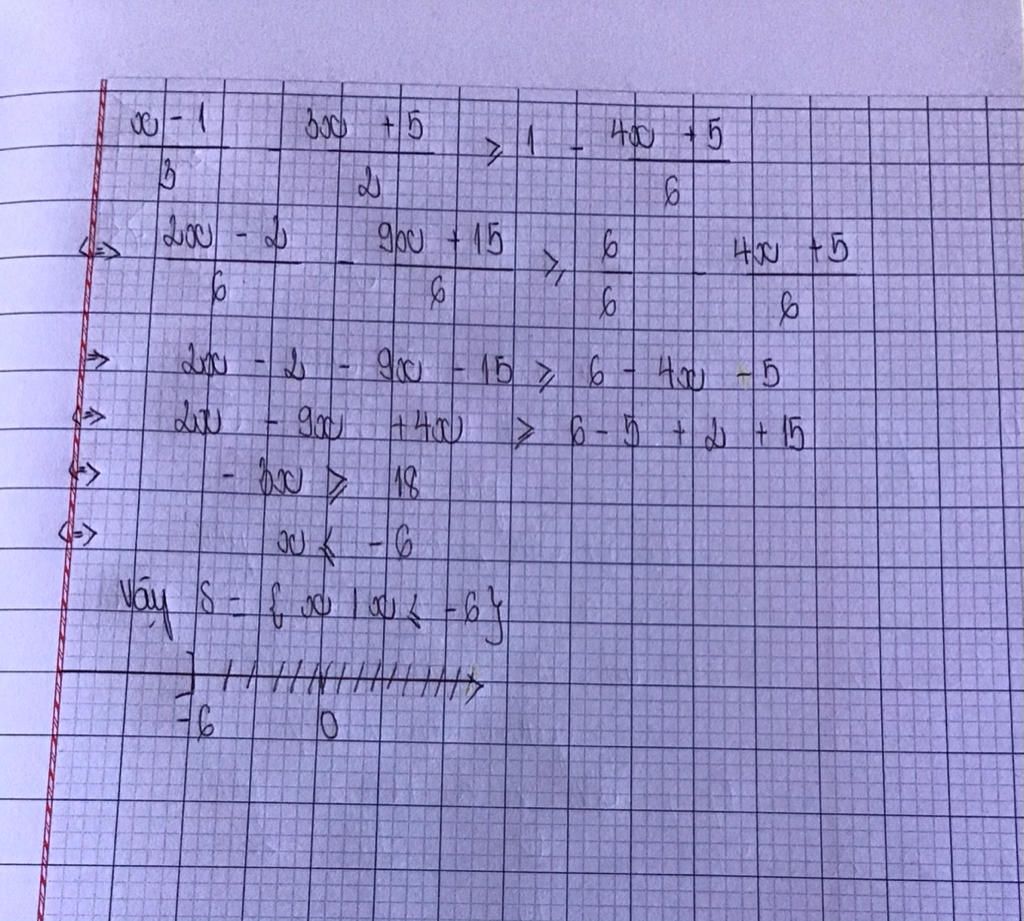 x - 1 / 3 - 3x + 5 / 2 ≥ 1 - 4x + 5 / 6
<=> 2x - 2 / 6 - 9x + 15 / 6 ≥ 6 / 6 - 4x + 5 / 6
=> 2x - 2 - 9x - 15 ≥ 6 - 4x - 5
<=> 2x - 9x + 4x ≥ 6 - 5 + 2 + 15
<=> - 3x ≥ 18
<=> x ≤ - 6
Vậy S = { x | x ≤ - 6 }
-6 0